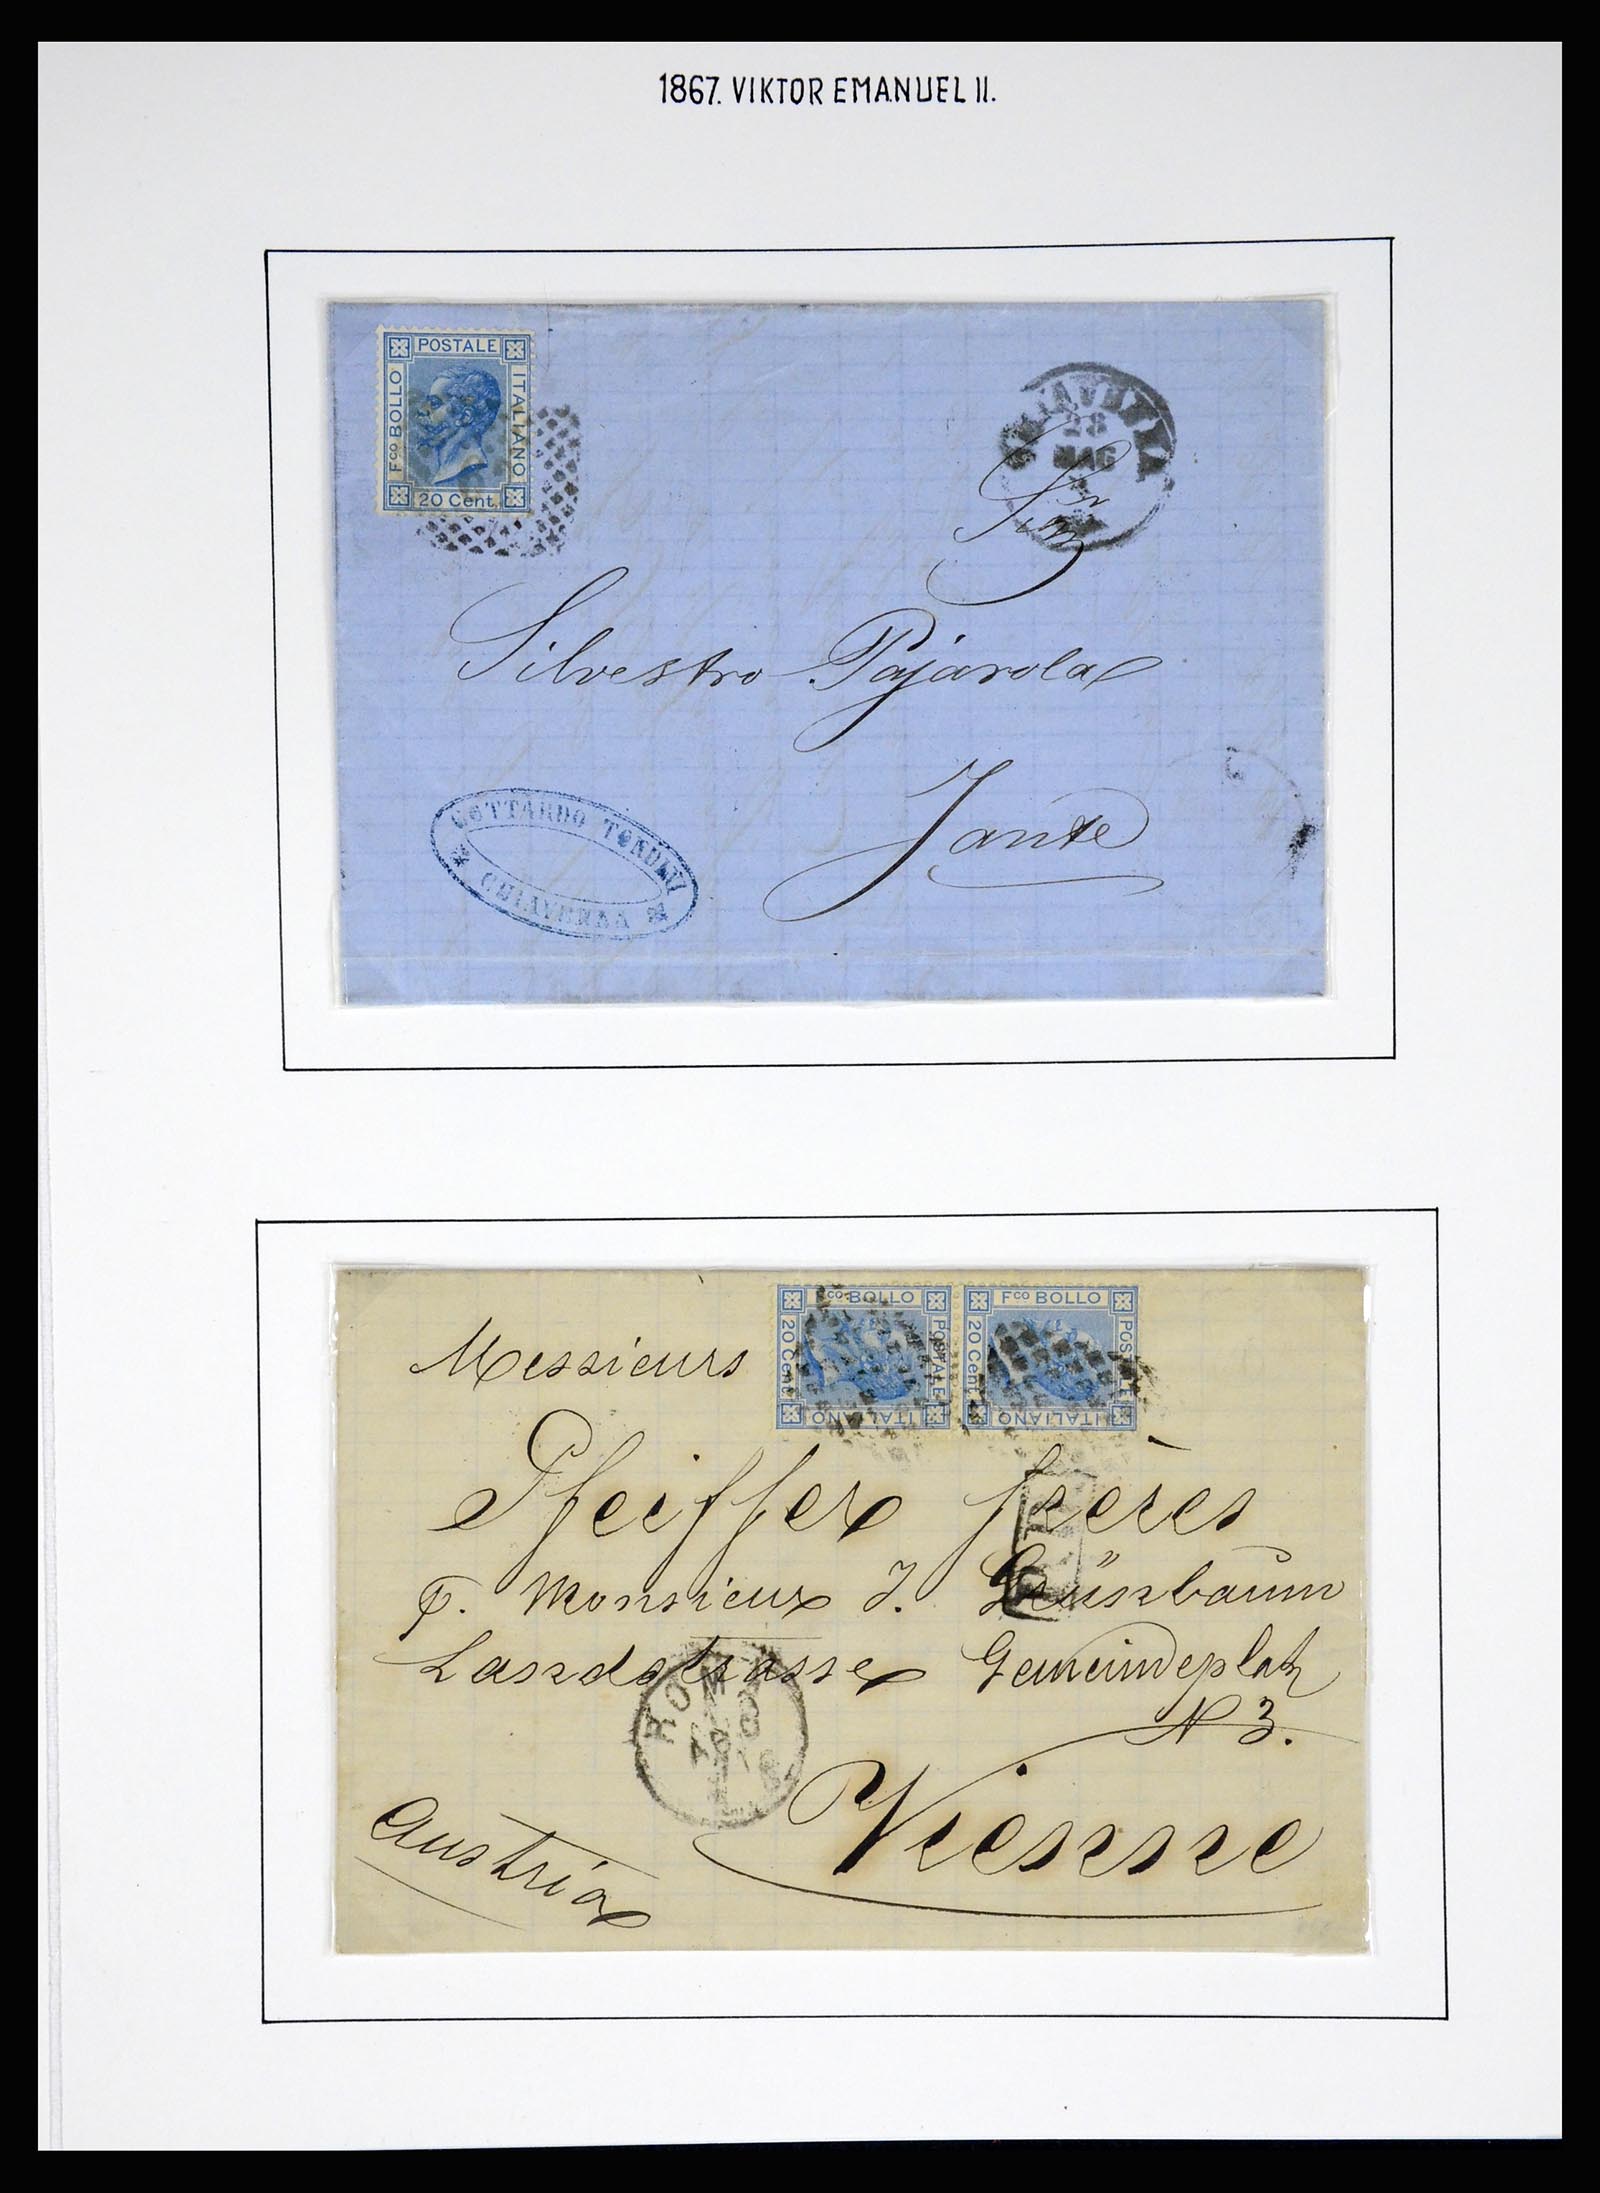 1867. VIKTOR EMANUEL II.
POSTALE
Fco BOLLO
ITALIANO
20 Cent.
28
MAG
Silvestro Pajarola
GOTTARDO
Fco BOLLO
20 Cent.
POSTALE
ITALIANO
Fco BOLLO
20 Cent.
POSTALE
ITALIANO
Messieurs
Pfeiffer frères
P.D.
p. Monsieur J. Grünbaum
Landstrasse Gemeindeplatz
N 3.
ROMA
Vienne
Austria